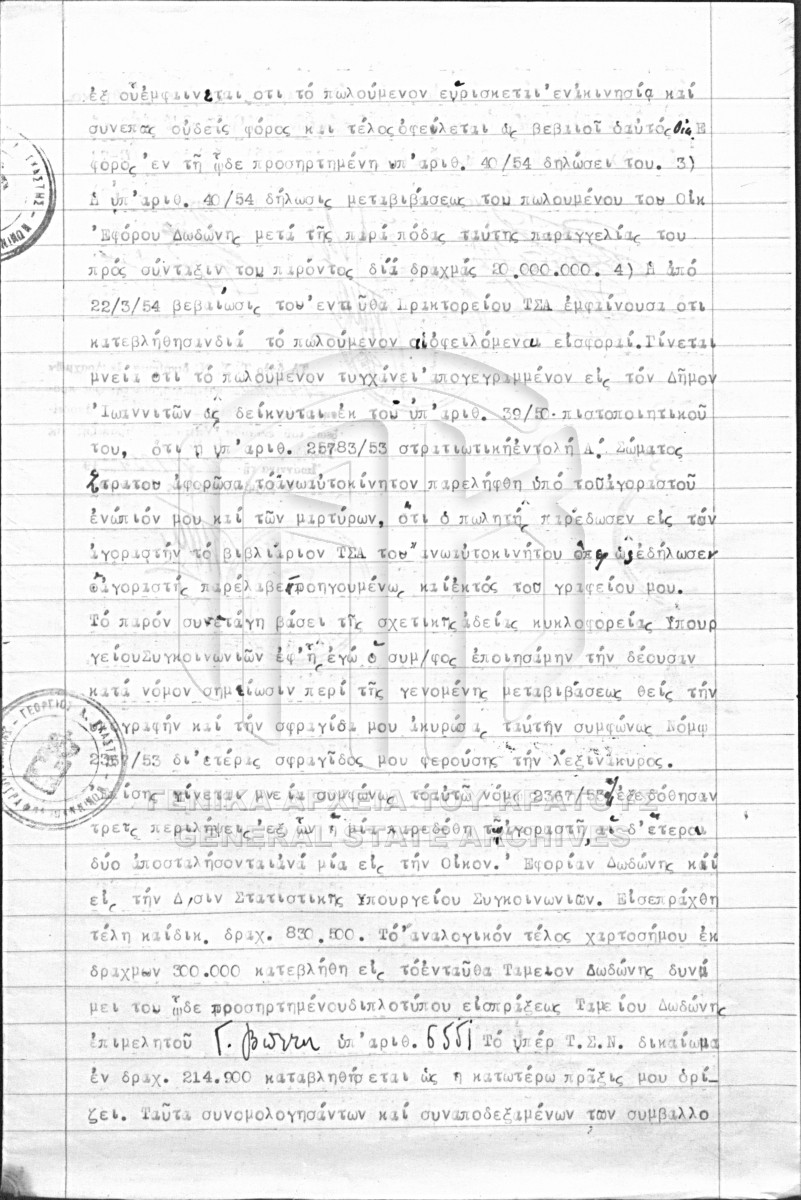 ἐξ οὗ ἐμφαίνεται οτι τό πωλούμενον εὑρίσκεται ἐν ἀκινησίᾳ καί
συνεπῶς οὐδείς φόρος και τέλος ὀφείλεται ὡς βεβαιοῖ ὁ αὐτός Οἰκ. Ε
φορος ἐν τῇ ὧδε προσηρτημένῃ ὑπ' ἀριθ. 40/54 δηλώσει του. 3)
Ἡ ὑπ' ἀριθ. 40/54 δήλωσις μεταβιβάσεως του πωλουμένου του Οἰκ
Ἐφόρου Δωδώνης μετά τῆς παρά πόδας ταύτης παραγγελίας του
πρός σύνταξιν του παρόντος διά δραχμάς 20.000.000. 4) Ἡ ἀπό
22/3/54 βεβαίωσις του ἐνταῦθα Πρακτορείου ΤΣΑ ἐμφαίνουσα οτι
κατεβλήθησαν διά τό πωλούμενον αἱ ὀφειλόμεναι εἰσφοραί. Γίνεται
μνεία οτι τό πωλούμενον τυγχάνει ἀπογεγραμμένον εἰς τόν Δῆμον
Ἰωαννιτῶν ὡς δείκνυται ἐκ τοῦ ὑπ' ἀριθ. 39/50 πιστοποιητικοῦ
του, ὅτι ἡ ὑπ' ἀριθ. 25783/53 στρατιωτική ἐντολή Α. Σώματος
Στρατου ἀφορῶσα τό ἄνω αὐτοκίνητον παρελήφθη ὑπό τοῦ ἀγοραστοῦ
ἐνώπιόν μου καί τῶν μαρτύρων, ὅτι ὁ πωλητής παρέδωσεν εἰς τόν
ἀγοραστήν τό βιβλιάριον ΤΣΑ του ἄνω αὐτοκινήτου ὅπερ ὡς ἐδήλωσεν
ὁ ἀγοραστής παρέλαβε προηγουμένως καί ἐκτός τοῦ γραφείου μου.
Τό παρόν συνετάγη βάσει τῆς σχετικῆς ἀδείας κυκλοφορείας Υπουρ
γείου Συγκοινωνιῶν ἐφ' ἧς ἐγώ ὁ συμ/φος ἐποιησάμην τήν δέουσαν
κατά νόμον σημείωσιν περί τῆς γενομένης μεταβιβάσεως θείς τήν
ὑπογραφήν καί τήν σφραγῖδα μου ἀκυρώσας ταύτην συμφώνως Νόμῳ
2367/53 δι' ἑτέρας σφραγῖδος μου φερούσης τήν λέξιν ἄκυρος.
Ἐπίσης γίνεται μνεία συμφώνως τῷ αὐτῷ νόμῳ 2367/53 ἐξεδόθησαν
τρεῖς περιλήψεις ἐξ ὧν ἡ μία παρεδόθη τῷ ἀγοραστῇ, αἱ δ' ἕτεραι
δύο ἀποσταλήσονται ἀνά μία εἰς τήν Οἰκον. Ἐφορίαν Δωδώνης καί
εἰς τήν Δ/σιν Στατιστικῆς Υπουργείου Συγκοινωνιῶν. Εἰσεπράχθη
τέλη καί δικ. δραχ. 830.500. Τό ἀναλογικόν τέλος χαρτοσήμου ἐκ
δραχμων 300.000 κατεβλήθη εἰς τό ἐνταῦθα Ταμειον Δωδώνης δυνά
μει του ὧδε προσηρτημένου διπλοτύπου εἰσπράξεως Ταμείου Δωδώνης
ἐπιμελητοῦ Γ. ὑπ' ἀριθ. 6551 Τό ὑπέρ Τ.Σ.Ν. δικαίωμα
ἐν δραχ. 214.900 καταβληθήσεται ὡς ἡ κατωτέρω πρᾶξις μου ὁρί-
ζει. Ταῦτα συνομολογησάντων καί συναποδεξαμένων των συμβαλλο
ΓΕΝΙΚΑ ΑΡΧΕΙΑ ΤΟΥ ΚΡΑΤΟΥΣ
GENERAL STATE ARCHIVES